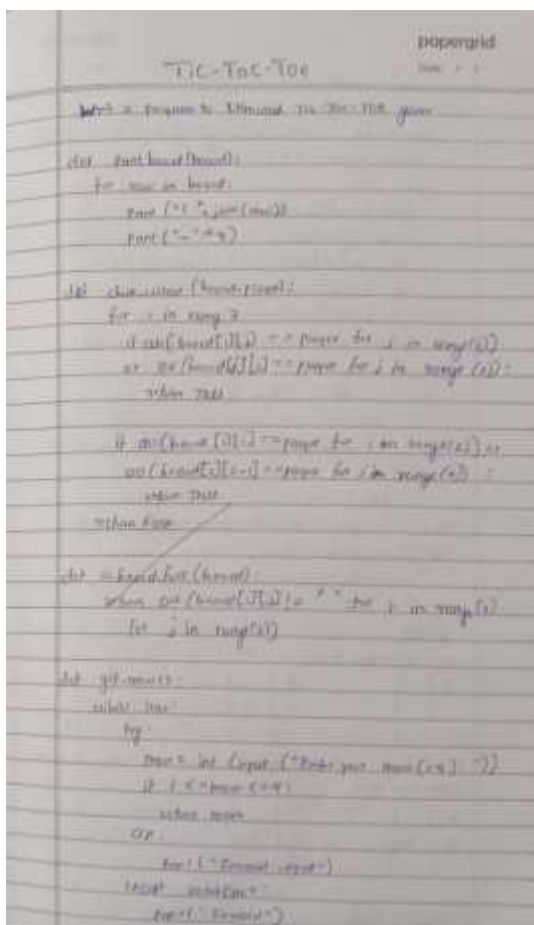 papergrid
Date: / /
Tic-Tac-Toe
Write a program to Tic Tac Toe game
def print board (board):
for row in board:
print ("| ".join(row))
print ("-"*9)
def (board, player):
for i in range 3
if all(board[i][j] == player for j in range(3))
or all(board[j][i] == player for j in range(3)):
return True
if all(board[i][i] == player for i in range(3)) or
all(board[i][2-i] == player for i in range(3)) :
return True
return False
def (board):
return all (board[i][j] != " " for i in range(3)
for j in range(3))
def get-move():
while True:
try:
move = int (input ("Enter your move (1-9) : "))
if 1 <= move <= 9:
return move
print ("Invalid input")
except
print ("Invalid")